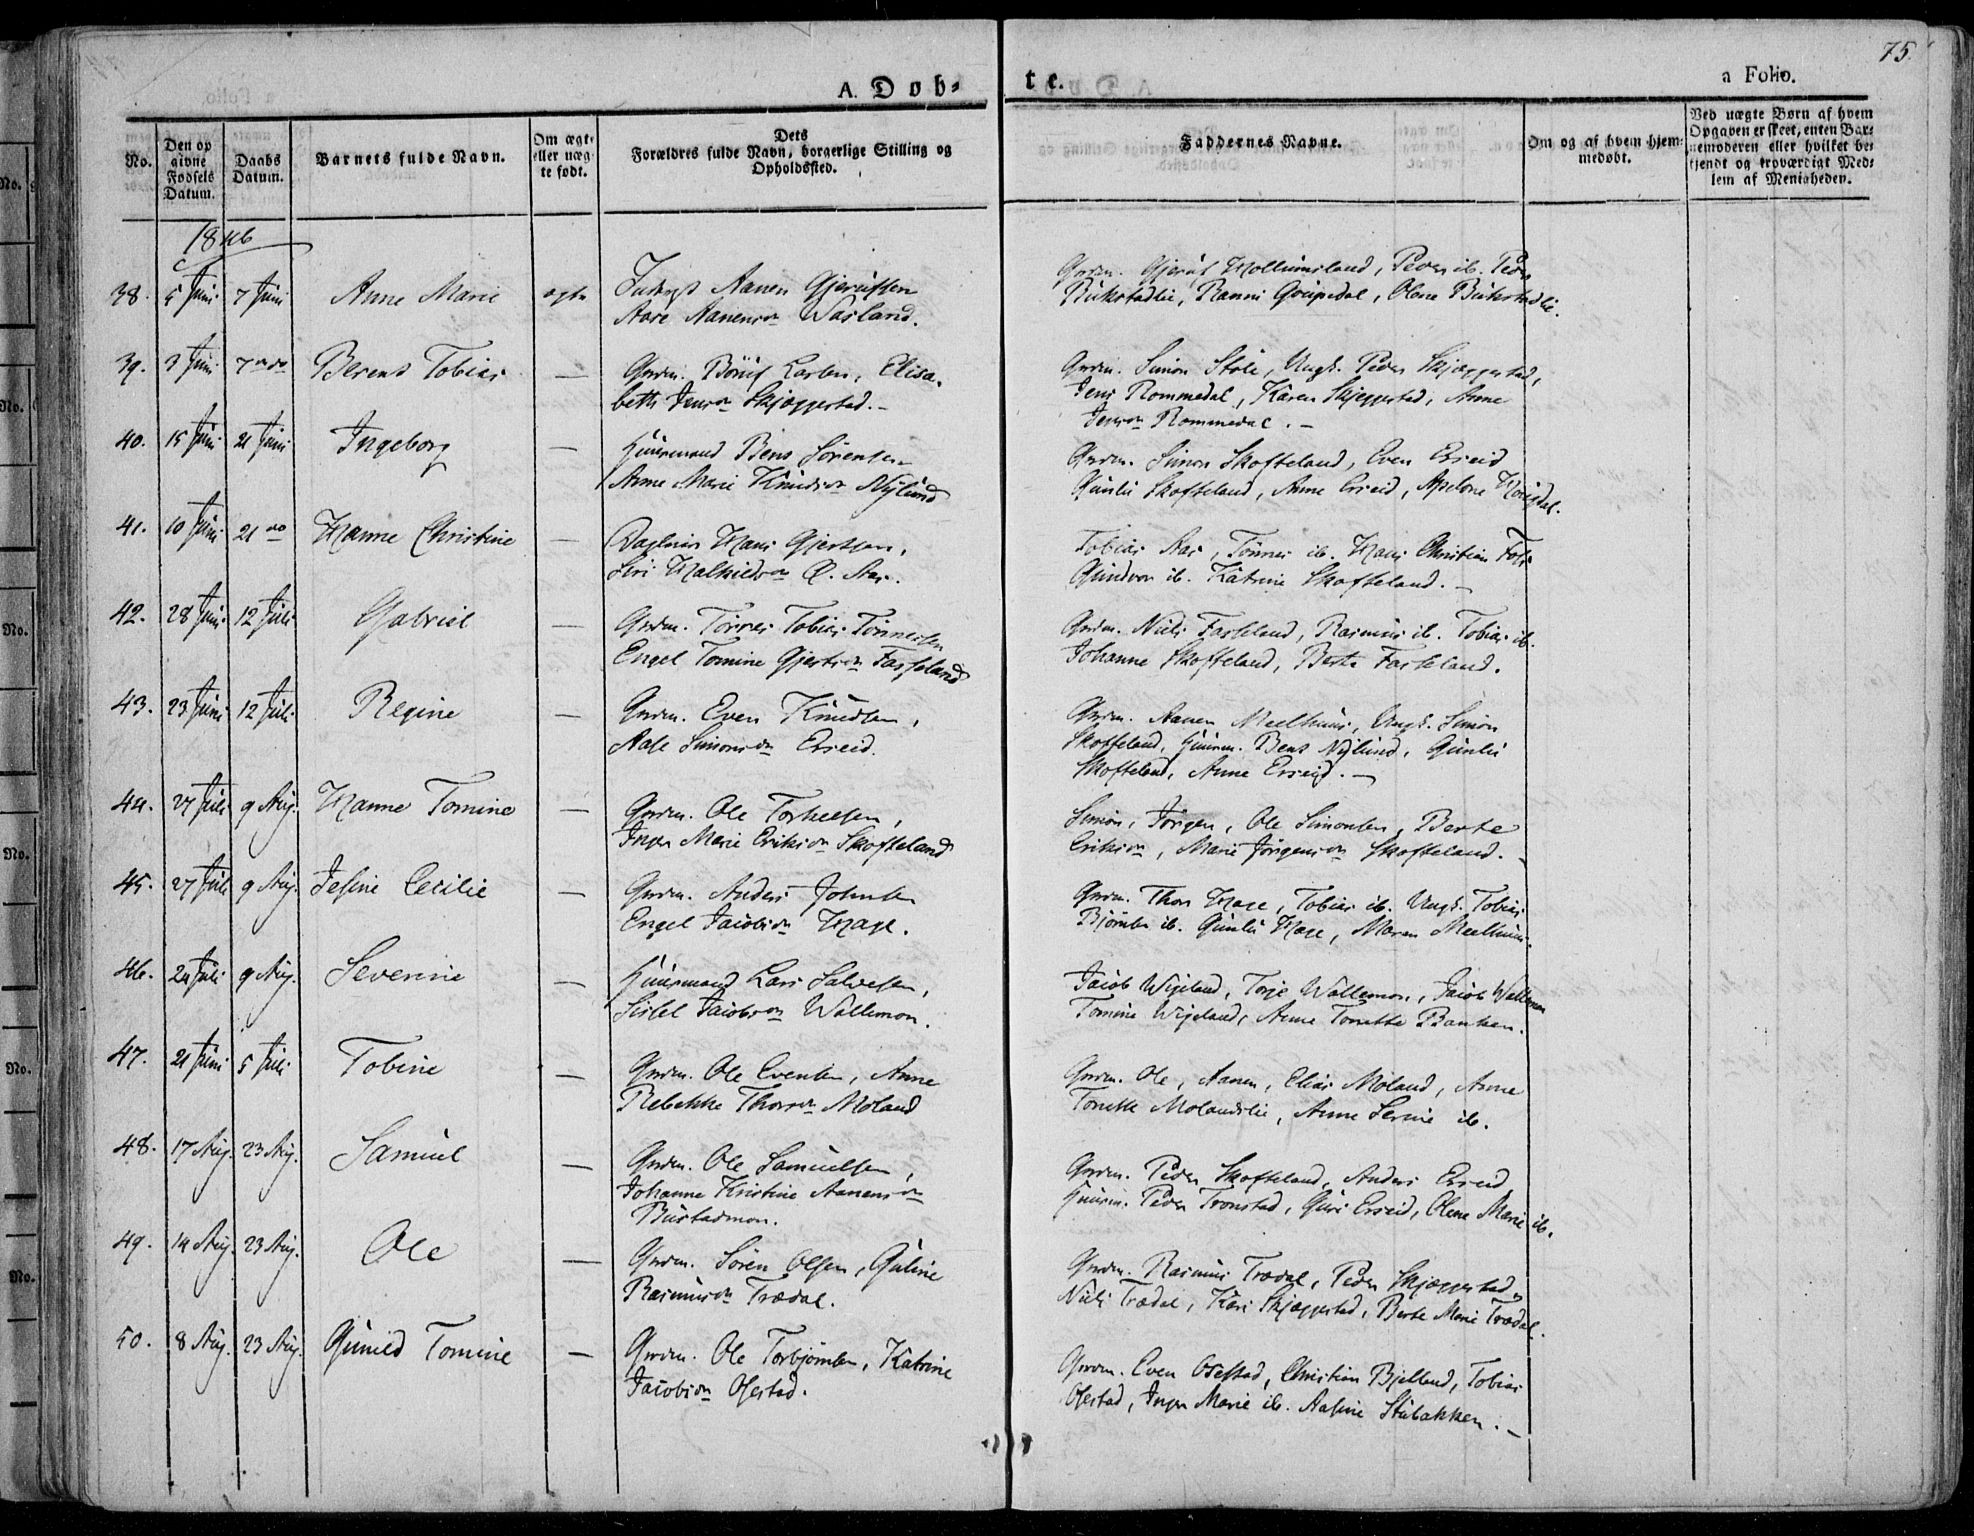 75.
A. Døb=
te.
a Folio.
No.
Den op
givne
Fødsels
Datum.
Daabs
Datum.
Barnets fulde Navn.
Om ægte
eller uæg-
te født.
Dets
Forældres fulde Navn, borgerlige Stilling og
Opholdssted.
Faddernes Navne.
Om og af hvem hjem-
medøbt.
Ved uægte Børn af hvem
Opgaven er skeet, enten Bar-
nemoderen eller hvilket be-
kjendt og troværdigt Med-
lem af Menigheden.
1846
38. 5 Juni 7 Juni Anne Marie ægte Aanen
Aanens
39. 3 Juni 7 do Berent Tobias — Grdm. Elisa-
beth Jensdn Skjæggestad. –
Grdm. Simon Støle, Ungk. Peder Skjæggestad,
Jens Rommedal, Karen Skjeggestad, Anne
Jensdn Rommedal. –
40. 15 Juni 21 Juni Ingeborg — Huusmand Bent Sørensen
Anne Marie Knudsdn Nylund
Grdm. Simon Skofteland, Even Erseid
Gunlu Skofteland, Anne Erseid,
41. 10 Juni 21 do Hanne Christine — Hans Gjertsen,
Siri
Tobias Aas, Tønnes ib. Hans Christian
ib. Katrine Skofteland. –
42. 28 Juni 12 Juli Gabriel — Grdm. Tobias Tønnessen
Engel Tomine Gjertsdn Fasseland
Grdm. Niels Fasseland, Rasmus ib. Tobias ib.
Johanne Skofteland, Berte Fasseland.
43. 23 Juni 12 Juli Regine — Grdm. Even Knudsen,
Aase Simonsdn Erseid.
Grdm. Aanen Meelhuus, Ungk. Simon
Skofteland, Huusm. Bent Nylund, Gunlu
Skofteland, Anne Erseid. –
44. 27 Juli 9 Aug. Hanne Tomine — Grdm. Ole Torkelsen,
Inger Marie Eriksdn Skofteland
Simon, Jørgen, Ole Simonsen, Berte
Eriksdn, Marie Jørgensdn Skofteland. –
45. 27 Juli 9 Aug. Jesine Cecilie — Grdm. Anders Johnsen
Engel Jacobsdn Hage.
Grdm. Thor Hage, Tobias ib. Ungk. Tobias
ib. Gunlu Hage, Maren Meelhuus.
46. 24 Juli 9 Aug. Severine — Huusmand Lars Salvesen,
Sissel Jacobsdn Wallemon.
Jacob Wigeland, Torje Wallemon, Jacob Wallemon
Tomine Wigeland, Anne Tonette Banken.
47. 21 Juni 5 Juli Tobine — Grdm. Ole Evensen, Anne
Rebekke Thorsdn Moland
Grdm. Ole, Aanen, Elias Moland, Anne
Tonette Molandslie, Anne Serine ib.
48. 17 Aug. 23 Aug. Samuel — Grdm. Ole Samuelsen,
Johanne Kristine Aanensdn
Bustadmon.
Grdm. Peder Skofteland, Anders Erseid
Huusm. Peder Tronstad, Guri Erseid, Olene Marie ib.
49. 14 Aug. 23 Aug. Ole — Grdm. Søren Olsen, Guline
Rasmusdn Trædal.
Grdm. Rasmus Trædal, Peder Skjæggestad,
Niels Trædal, Kari Skjæggestad, Berte Marie Trædal.
50. 8 Aug. 23 Aug. Gunild Tomine — Grdm. Ole Torbjørnsen, Katrine
Jacobsdn Ofestad.
Grdm. Even Ofestad, Christian Bjelland, Tobias
Ofestad, Inger Marie ib. Aasine Stubakken. –